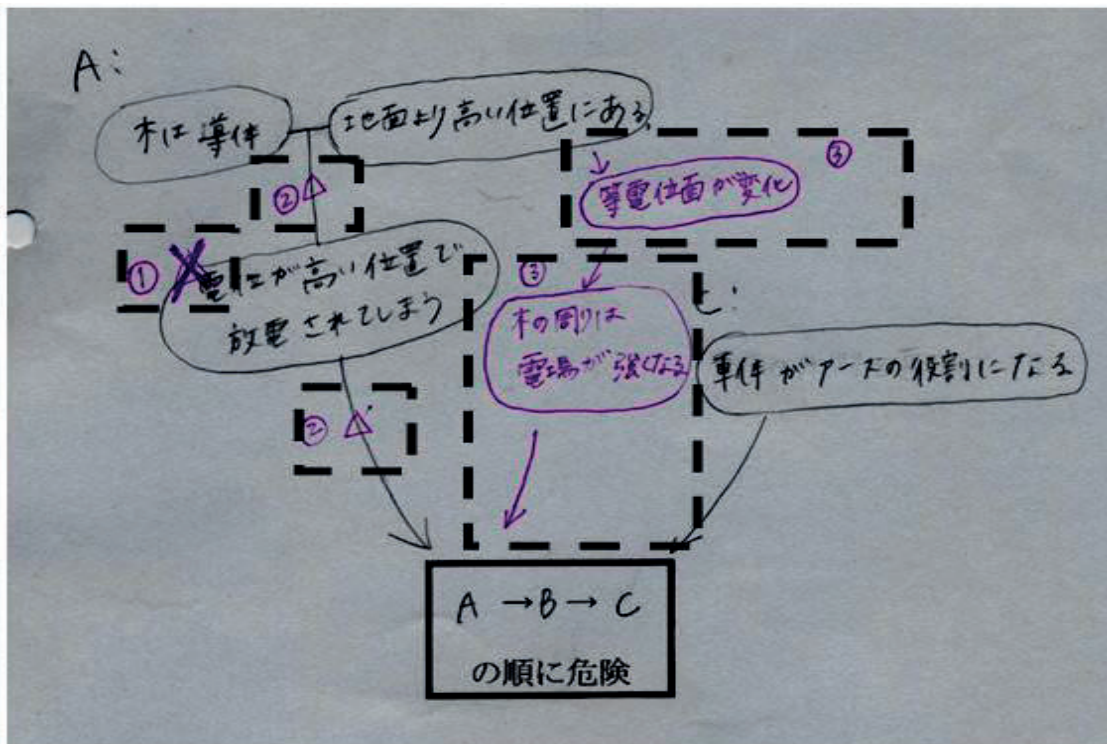 A:
木は導体
地面より高い位置にある
② △
③
等電位面が変化
①
電位が高い位置で
放電されてしまう
③
木の周りは
電場が強くなる
車体がアースの役割になる
② △
A → B → C
の順に危険